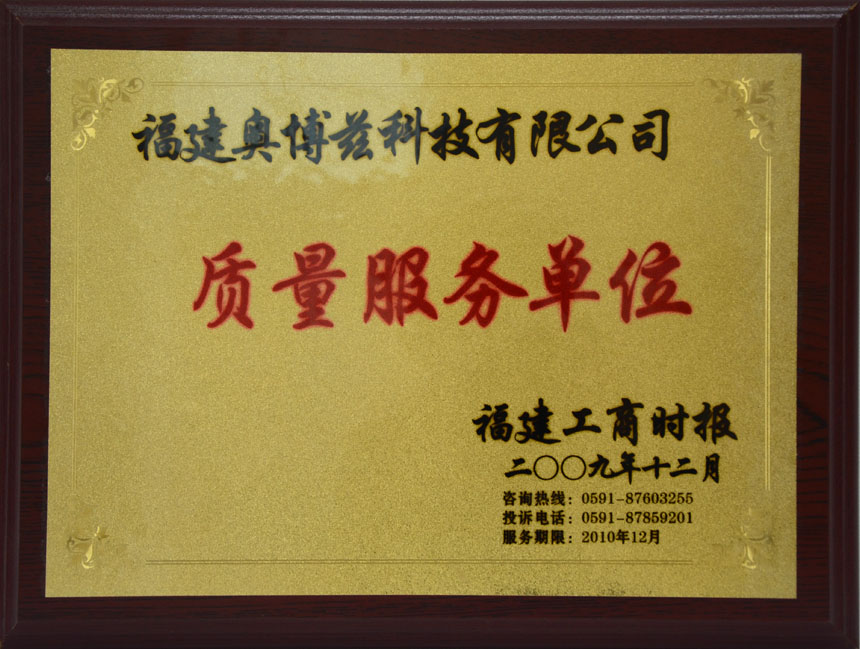 福建奥博兹科技有限公司
质量服务单位
福建工商时报
二〇〇九年十二月
咨询热线：0591-87603255
投诉电话：0591-87859201
服务期限：2010年12月